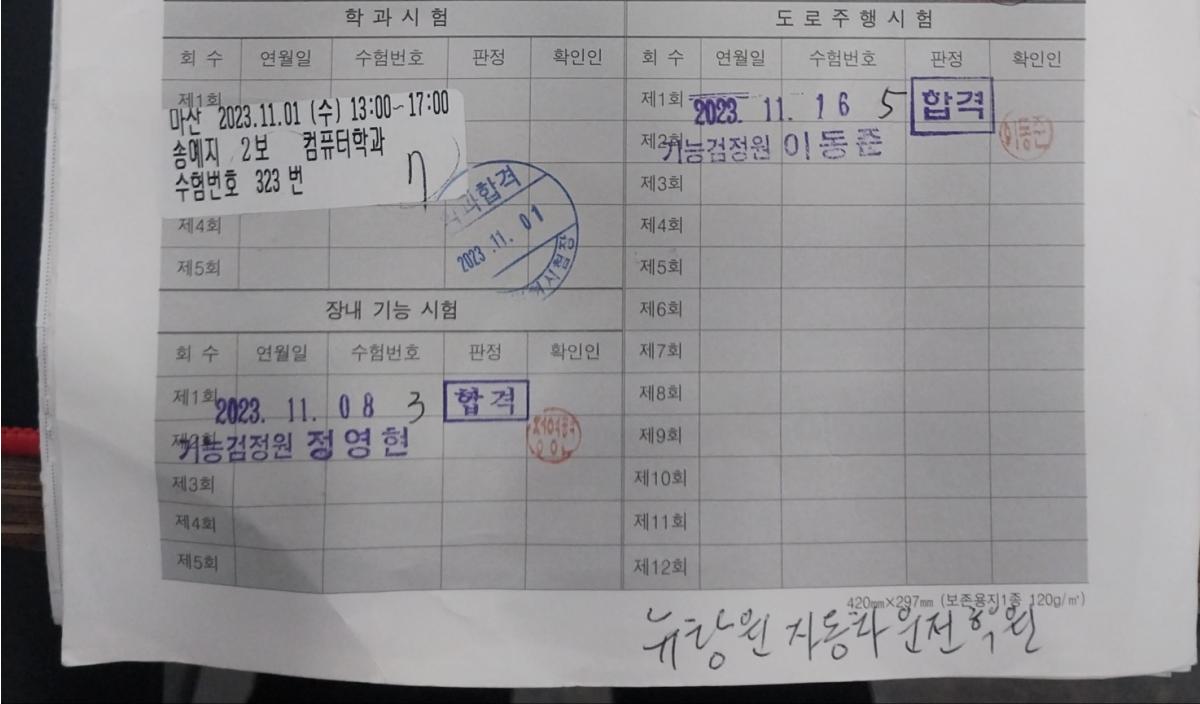 학과시험
회 수 연월일 수험번호 판정 확인인
제1회
마산 2023.11.01 (수) 13:00~17:00
송예지 2보 컴퓨터학과
수험번호 323 번
7
학과합격
2023.11. 01
시험장
제4회
제5회
장내 기능 시험
회 수 연월일 수험번호 판정 확인인
제1회 2023. 11. 08 3 합격
제2회 기능검정원 정영현
제3회
제4회
제5회
도로주행시험
회 수 연월일 수험번호 판정 확인인
제1회 2023. 11. 16 5 합격
제2회 기능검정원 이동준
이동준
제3회
제4회
제5회
제6회
제7회
제8회
제9회
제10회
제11회
제12회
420㎜×297㎜ (보존용지1종 120g/㎡)
뉴창원 자동차 운전학원